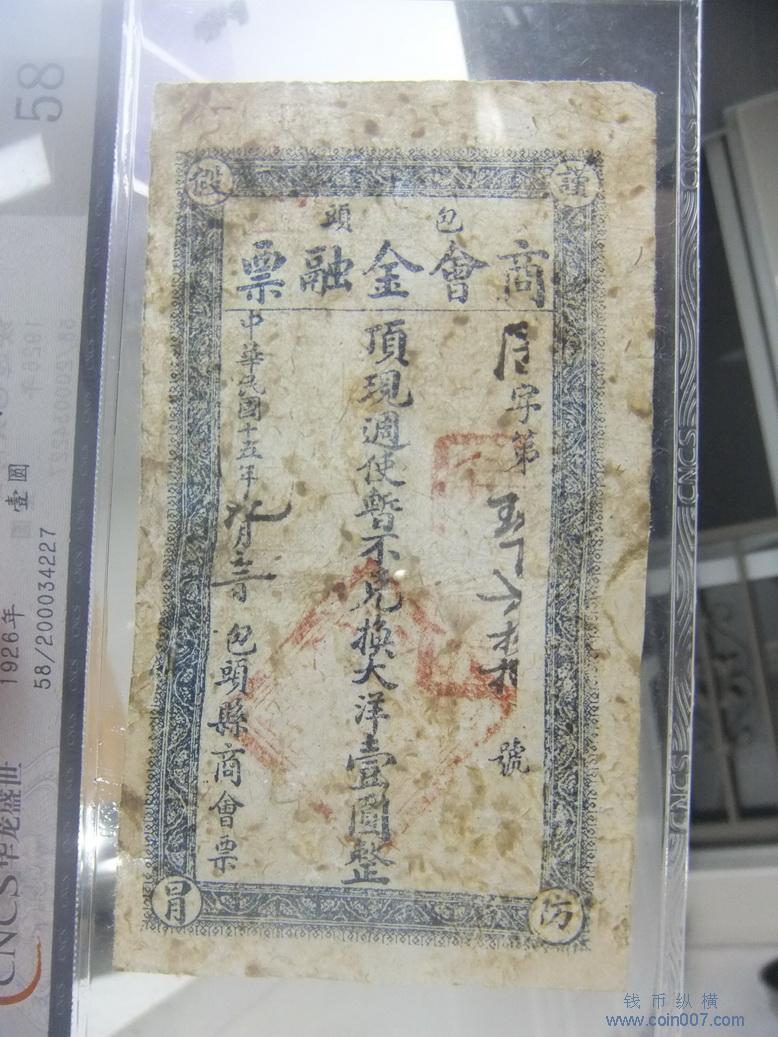 謹防假冒
包頭
商會金融票
字第
號
頂現週使暫不兌換大洋壹圓整
中華民國十五年
月
包頭縣商會票
58
壹圓
1926年
58/200034227
CNCS华龙盛世
CNCS
CNCS
CNCS
CNCS
钱币纵横
www.coin007.com